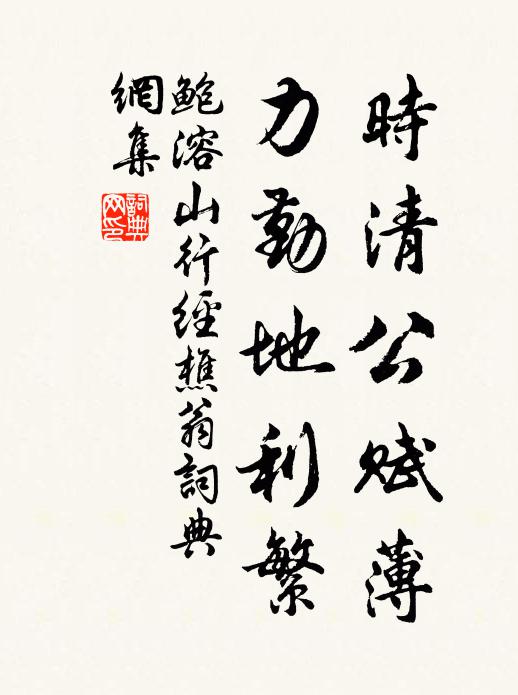 時清公賦薄
力勤地利繁
鮑溶山行經樵翁詞典
網集
詞典
网印